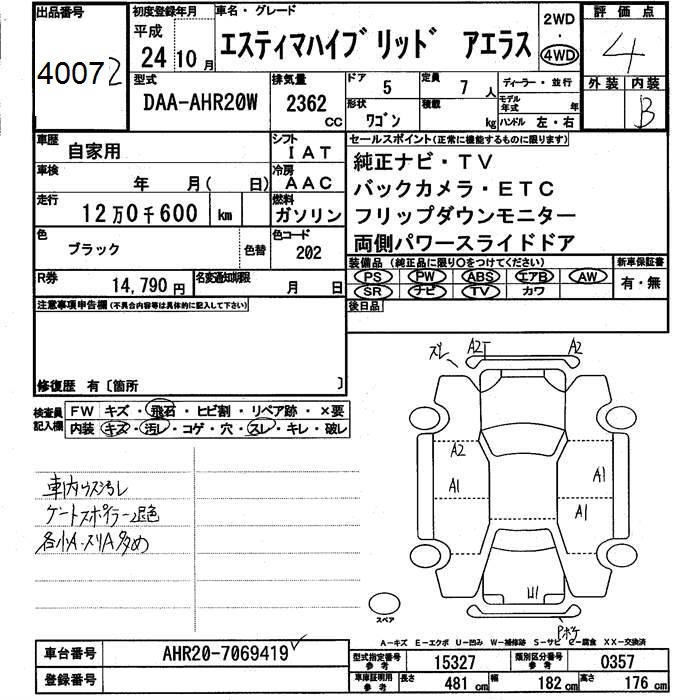 出品番号
40072
初度登録年月
平成
24 10月
車名・グレード
エスティマハイブリッド アエラス
2WD
・
4WD
評価点
4
外装 内装
B
型式
DAA-AHR20W
排気量
2362
cc
ドア
5
定員
7人
形状
ワゴン
積載
kg
ディーラー・並行
モデル年式 年
ハンドル 左・右
車歴
自家用
シフト
IAT
車検
年 月( 日)
冷房
AAC
走行
12万0千600 km
燃料
ガソリン
色
ブラック
色替
色コード
202
R券
14,790円
名変通知期限
月 日
セールスポイント(正常に機能するものに限ります)
純正ナビ・TV
バックカメラ・ETC
フリップダウンモニター
両側パワースライドドア
装備品(純正品に限り○をつけてください)
新車保証書
PS PW ABS エアB AW
SR ナビ TV カワ
有・無
後日品
注意事項申告欄(不具合内容等は具体的に記入して下さい)
修復歴 有〔箇所 〕
検査員記入欄
FW キズ・飛石・ヒビ割・リペア跡・×要
内装 キズ・汚レ・コゲ・穴・スレ・キレ・破レ
車内ウス汚レ
ゲートスポイラー退色
各小A・スリA多め
ズレ A2 A2
A2
A1 A1
A1
U1
Pボケ
スペア
A-キズ E-エクボ U-凹み W-補修跡 S-サビ C-腐食 XX-交換済
車台番号
AHR20-7069419
登録番号
型式指定番号参考
15327
類別区分番号参考
0357
車庫証明用参考
長さ 481cm 幅 182cm 高さ 176cm